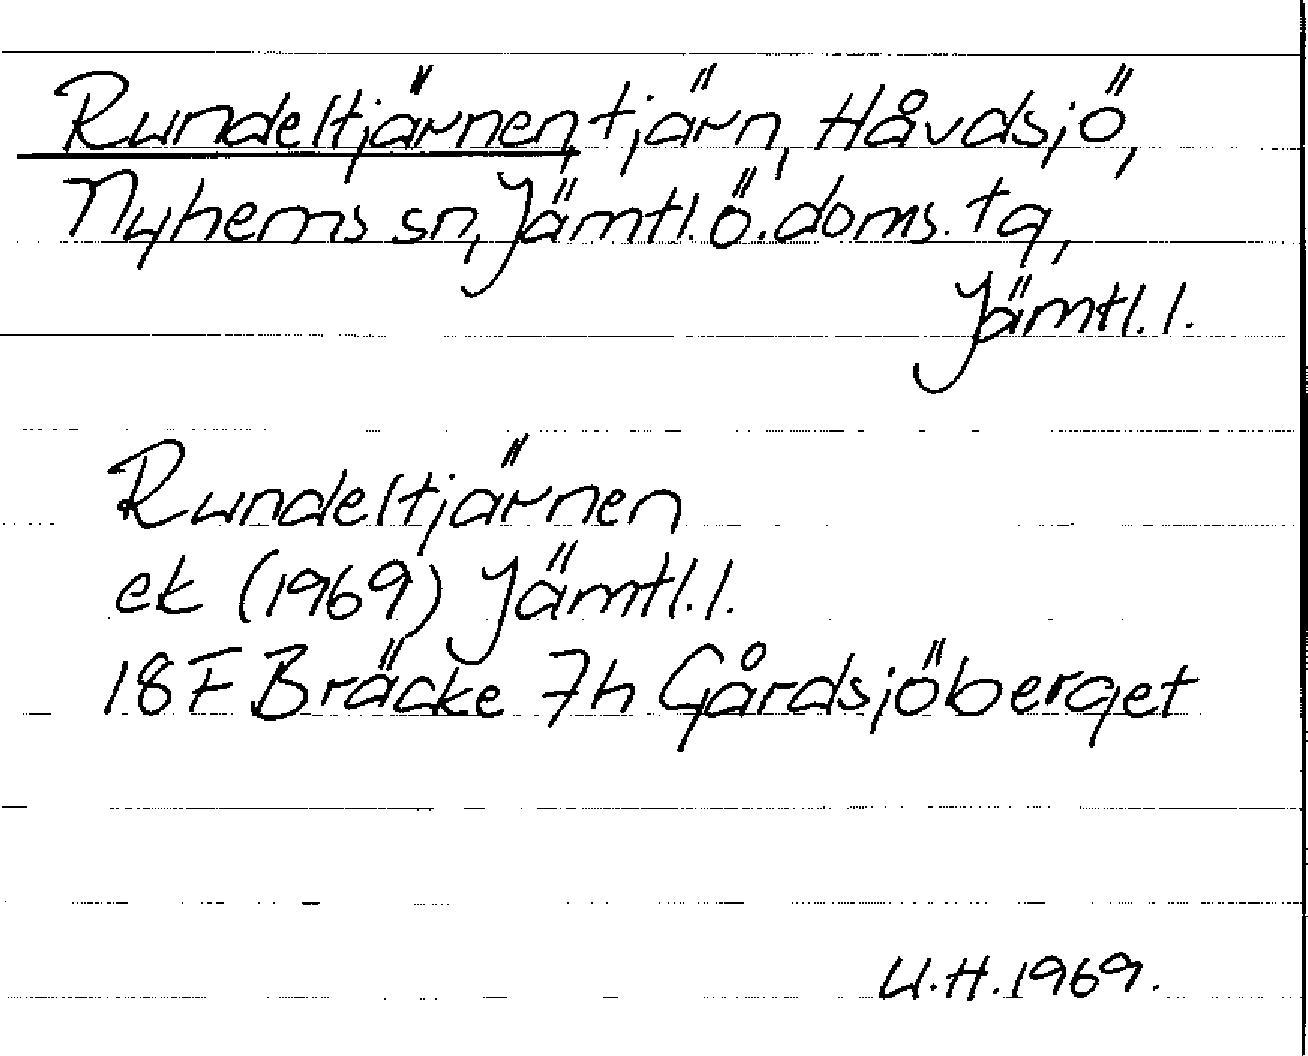 Rundeltjärnen, tjärn, Håvdsjö,
Nyhems sn, Jämtl. ö. doms. tg,
Jämtl. l.
Rundeltjärnen
ek (1969) Jämtl. l.
18 F Bräcke 7h Gårdsjöberget
U.H. 1969.